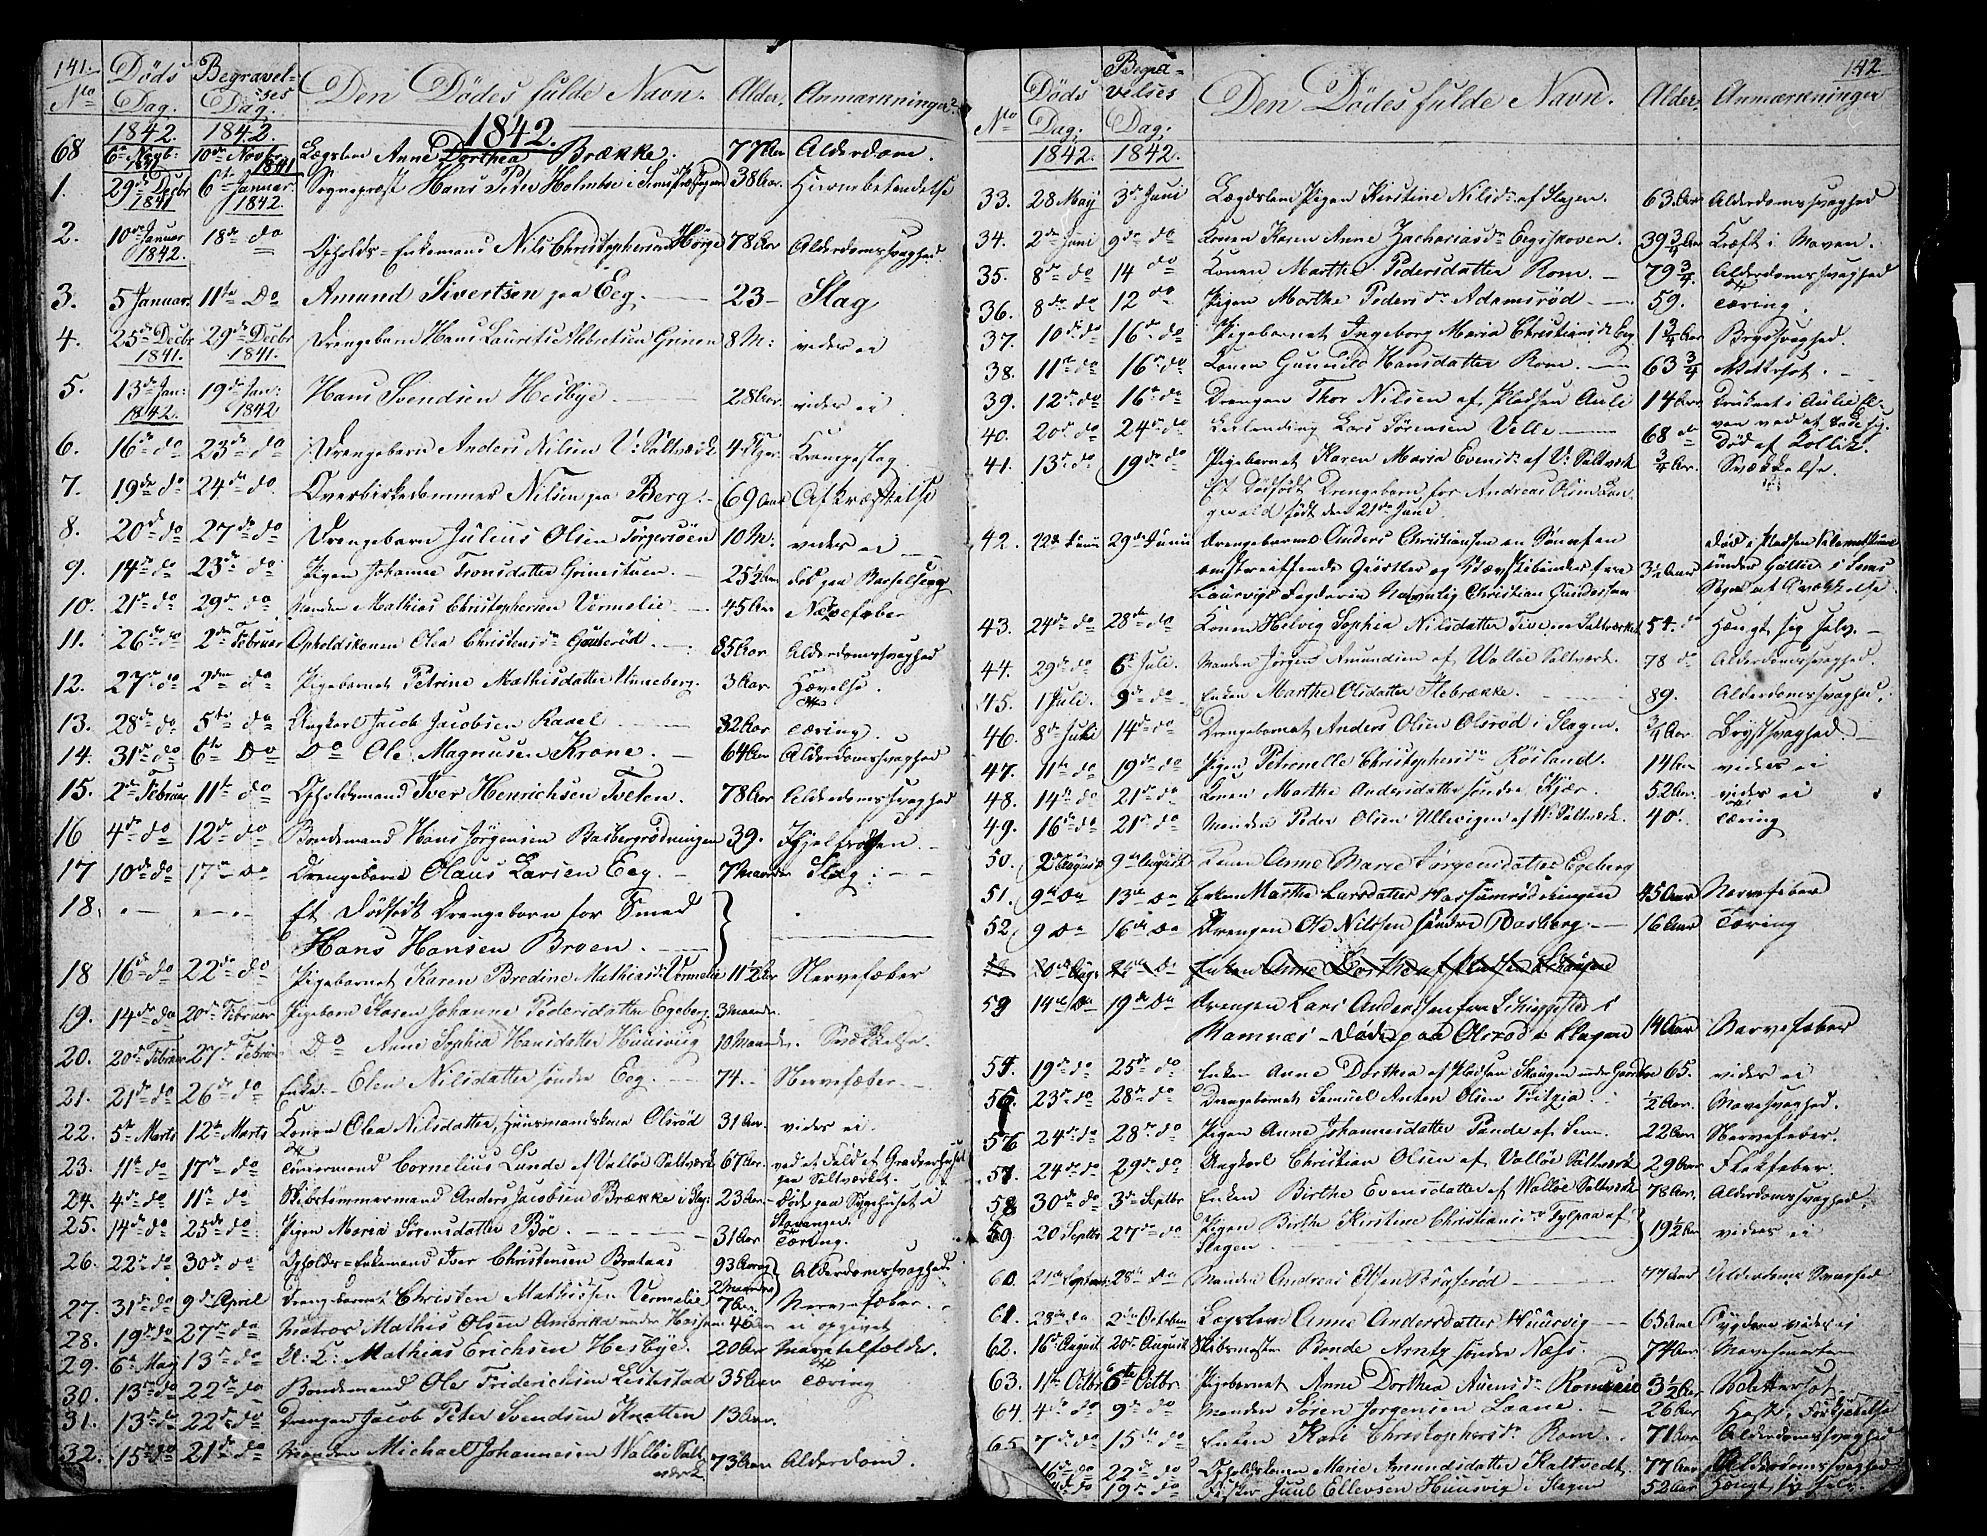 141.
No Døds Dag. Begravelses Dag. Den Dødes fulde Navn. Alder. Anmærkninger
1842. 1842. 1842.
68 6te Novb: 1841 10de Novb. 1841 Lægslem Anne Dorthea Brække. 77 Aar Alderdom.
1. 29de Decbr 1841 6te Januar 1842. Sognepræst Hans Peder Holmboe i 38 Aar.
2. 10de Januar 1842. 18de do Opholds-Enkemand Nils Christophersen Hørge 78 Aar Alderdomssvaghed
3. 5 Januar 11te Do Amund Sivertsen paa Eeg. 23 - Slag
4. 25de Decbr 1841. 29de Decbr 1841. Drengebarn Hans Laurits Albretsen Grinen 8 M: vides ei
5. 13de Jan: 1842. 19de Jan: 1842 Hans Svendsen Hesbye. 28 Aar. vides ei.
6. 16de do 23de do Drengebarn Anders Nilsen V: Saltværk 4 Uger Krampeslag
7. 19de do 24de do Nilsen paa Berg. 69 Aar Afkræftelse
8. 20de do 27de do Drengebarn Julius Olsen Torgersøen 10 M. vides ei
9. 14de do 23de do Pigen Johanne Tronsdatter Grinestuen. 25½ Aar død paa Barselseng
10. 21de do 29de do Manden Mathias Christophersen Vermelie. 45 Aar Nervefeber
11. 26de do 2den Februar Opholdskonen Olea Christensdr Gouterød. 85 Aar Alderdomssvaghed
12. 27de do 2den do Pigebarnet Petrine Mathisdatter Unneberg. 3 Aar. Hævelse.
13. 28de do 5te do Ungkarl Jacob Jacobsen Ravel 32 Aar Tæring.
14. 31te do 6te Do Do Ole Magnusen Krone. 64 Aar Alderdomssvaghed
15. 2de Februar 11te do Opholdsmand Iver Henrichsen Tveten. 78 Aar Alderdomssvaghed
16 4de do 12de do Bondemand Hans Jørgensen Basbergrødningen 39.
17 10de do 17de do Drengebarn Olaus Larsen Eeg. 7 Maaneder Slag.
18. Et Dødfødt Drengebarn for Smed
Hans Hansen Broen.
18 16de do 22de do Pigebarnet Karen Bredine Mathisdr Vermelie 11½ Aar Nervefeber
19. 14de do 20de Februar Pigebarn Karen Johanne Pedersdatter Egeberg 3 Maaneder.
20. 20de Februar 27de Februar Do Anne Sophia Hansdatter Huusvig 10 Maaneder. Svækkelse.
21. 21de do 26de do Enke Elen Nilsdatter søndre Eeg. 74. Nervefeber
22. 5te Marts 12te Marts Konen Olea Nilsdatter, Huusmandskone Olsrød 31 Aar. vides ei.
23. 11te do 17de do Tømmermand Cornelius Lunde af Valløe Saltværk 67 Aar. ved et Fald af Graderhuset paa Saltværket.
24. 4de do 11te do Skibstømmermand Anders Jacobsen Brække i Slag: 23 Aar. Døde paa Sygehuset i Stavanger.
25. 14de do 25de do Pigen Maria Sørensdatter Bøe. 31 Aar Tæring.
26. 22de do 30te do Opholds-Enkemand Iver Christensen Brataas 93 Aar og 2 Maaneder Alderdomssvaghed
27. 31te do 9de April Drengebarnet Christen Mathissen Vermelie 7 Aar. Nervefeber.
28. 19de do 27de do Matros Mathis Olsen Amerika under Hassum 40 Aar ei opgivet
29. 6te May 13de do U: K: Mathias Erichsen Hesbye. 20 Aar
30. 13de do 22de do Bondemand Ole Friderichsen Leilestad 35 Aar Tæring
31. 13de do 22de do Drengen Jacob Peter Svendsen Knatten 13 Aar.
32. 15de do 21de do Manden Michael Johannesen Walløe Saltværk 73 Aar Alderdom.
142
No Døds Dag. Begravelses Dag. Den Dødes fulde Navn. Alder. Anmærkninger
1842. 1842.
33. 28 May 3de Juni Lægdslem Pigen Kirstine Nilsdr af Slagen. 63 Aar Alderdomssvaghed
34. 2de Juni 9de do Konen Karen Anne Zachariasdr Eegsskoven. 39¾ Aar Kræft i Maven.
35. 8de do 14de do Konen Marthe Pedersdatter Rom. 79¾ Alderdomssvaghed
36. 8de do 12de do Pigen Marthe Pedersdr Adamsrød 59. Tæring.
37. 10de do 16de do Pigebarnet Ingeborg Maria Christiansdr Eeg 1¾ Aar Brystsvaghed.
38. 11te do 16de do Konen Gunnild Hansdatter Rom. 63¾ Vattersot.
39. 12te do 16de do Drengen Thor Nilsen af Pladsen Auli 14 Aar Druknet i Aulie Elven ved at bade sig.
40. 20de do 24de do Lars Sørensen Velle 68 do Død af Kollik.
41. 13de do 19de do Pigebarnet Karen Maria Evensdr af V: Saltværk ¾ Aar. Svækkelse.
Et Dødfødt Drengebarn for Andreas Olsen Langevald født den 21de Juni
42. 22de Juni 29de Juni Drengebarnet Anders Christiansen en Søn af en
omstreiffende Geistler og fra 3½ Aar
Laurvigs Fogderie Navnlig Christian Gundersen
43. 24de do 28de do Konen Helvig Sophia Nilsdatter Saltværket 54 do Hængt sig selv.
44. 29de do 6te Juli. Manden Jørgen Amundsen af Walløe Saltværk. 78 do Alderdomssvaghed.
45. 1 Juli. 9de do Enken Marthe Olsdatter Slebrække. 89. Alderdomssvaghed.
46. 8de Juli 14de do Drengebarnet Anders Olsen Olsrød i Slagen. ¾ Aar. Brystsvaghed
47. 11te do 19de do Pigen Petronelle Christophersdr Røsland. 14 Aar vides ei
48. 14de do 21de do Konen Marthe Andersdatter søndre Kjær. 52 Aar. vides ei
49. 16de do 21de do Manden Peder Olsen Ullevigen af W: Saltværk. 40. Tæring
50. 2de August 9de August Konen Anne Marie Jørgensdatter Egeberg
51. 9de Do 13de Do Enken Marthe Larsdatter Hassumrødningen 45 Aar Nervefeber
52. 9 Do 16de Do Drengen Ole Nilssen søndre Basberg. 16 Aar Tæring
59 14de Do 19de Do Drengen Lars Andersen fra i
Ramnæs - Døde paa Olsrød i Slagen 14 Aar Nervefeber
55. 19de do 25de do Enken Anne Dorthea af Pladsen Skougen under 65. vides ei
56. 23de do 28de do Drengebarnet Samuel Anton Olsen Tritzia ½ Aar. Mavesvaghed.
56 24de do 28de do Pigen Anne Johannesdatter Tande af Sem. 22 Aar Nervefeber.
57. 24de do 29de do Ungkarl Christian Olsen af Valløe Saltværk 29 Aar Flekfeber.
58 30de do 3de Septbr Enken Birthe Evensdatter af Walløe Saltværk 78 Aar. Alderdomssvaghed.
59. 20 Septbr 27de do Pigen Birthe Kirstine Christiansdr af
Slagen. 19½ Aar vides ei
60. 21de Septbr 28de do Manden Andreas Brasrød 77 Aar Alderdoms Svaghed
61. 28de do 2den October Lægslem Anne Andersdatter Huusvig 65 Aar Sygdom vides ei
62. 16de August 20de August Skibsmester Bonde Arntz søndre Næss. 74 Aar
63. 11te Octbr 6te Octbr Pigebarnet Anne Dorthea 3½ Aar Vattersot
64. 4de do 9de do Manden Søren Jørgensen Laane. 26 Aar
65. 7de do 15de do Enken Kari Christophersdr Rom. 71 Aar Alderdomssvaghed
16de do 22de do Opholdskonen Marie Amundsdatter Kaltvedt. 77 Aar Alderdomssvaghed
do 19de do Fisker Juul Ellevsen Huusvig i Slagen 52 Aar Hængt sig selv.